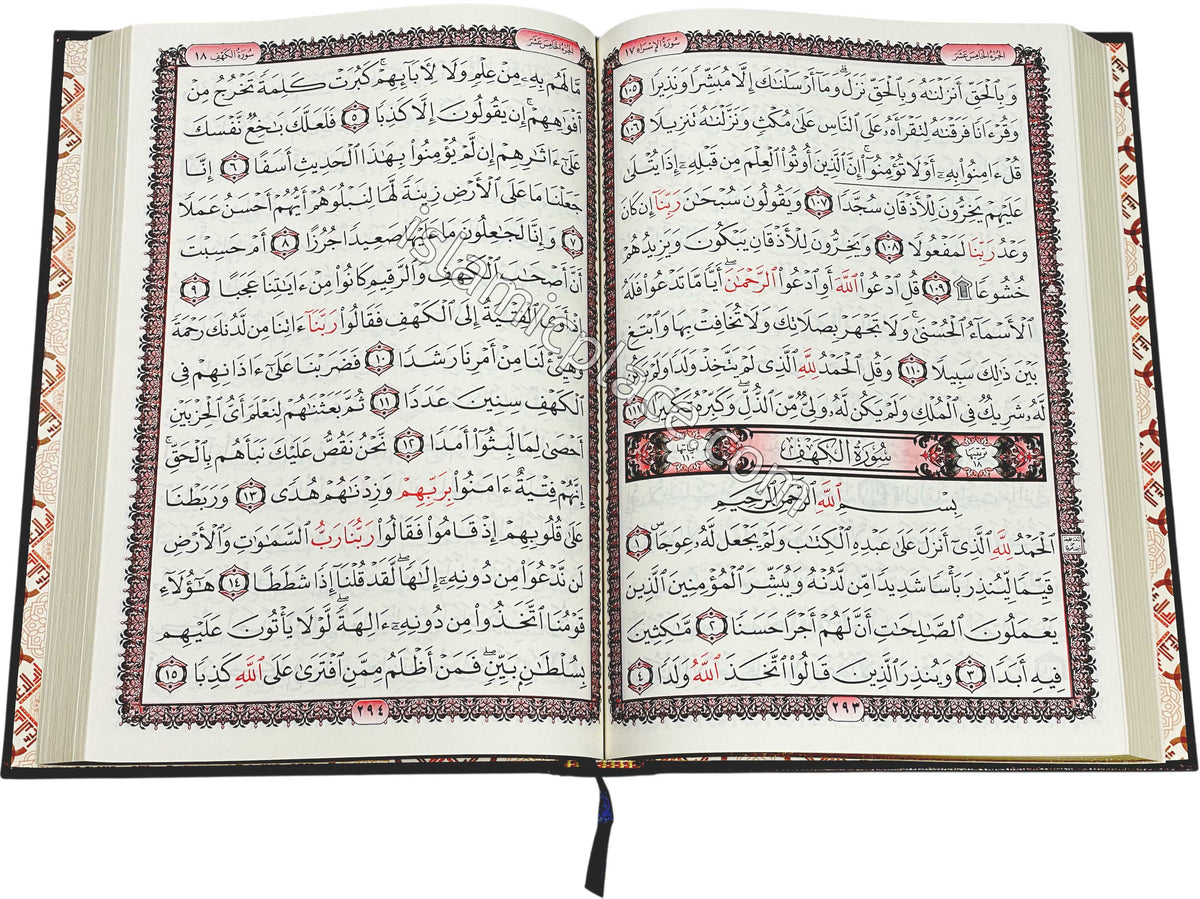 سُورَةُ الإِسْرَاء ١٧
الجُزْءُ الخَامِسَ عَشَرَ
وَبِٱلْحَقِّ أَنزَلْنَٰهُ وَبِٱلْحَقِّ نَزَلَ ۗ وَمَآ أَرْسَلْنَٰكَ إِلَّا مُبَشِّرًا وَنَذِيرًا ١٠٥
وَقُرْءَانًا فَرَقْنَٰهُ لِتَقْرَأَهُۥ عَلَى ٱلنَّاسِ عَلَىٰ مُكْثٍ وَنَزَّلْنَٰهُ تَنزِيلًا ١٠٦
قُلْ ءَامِنُوا۟ بِهِۦٓ أَوْ لَا تُؤْمِنُوٓا۟ ۚ إِنَّ ٱلَّذِينَ أُوتُوا۟ ٱلْعِلْمَ مِن قَبْلِهِۦٓ إِذَا يُتْلَىٰ
عَلَيْهِمْ يَخِرُّونَ لِلْأَذْقَانِ سُجَّدًا ١٠٧ وَيَقُولُونَ سُبْحَٰنَ رَبِّنَآ إِن كَانَ
وَعْدُ رَبِّنَا لَمَفْعُولًا ١٠٨ وَيَخِرُّونَ لِلْأَذْقَانِ يَبْكُونَ وَيَزِيدُهُمْ
خُشُوعًا ۩ ١٠٩ قُلِ ٱدْعُوا۟ ٱللَّهَ أَوِ ٱدْعُوا۟ ٱلرَّحْمَٰنَ ۖ أَيًّا مَّا تَدْعُوا۟ فَلَهُ
ٱلْأَسْمَآءُ ٱلْحُسْنَىٰ ۚ وَلَا تَجْهَرْ بِصَلَاتِكَ وَلَا تُخَافِتْ بِهَا وَٱبْتَغِ
بَيْنَ ذَٰلِكَ سَبِيلًا ١١٠ وَقُلِ ٱلْحَمْدُ لِلَّهِ ٱلَّذِى لَمْ يَتَّخِذْ وَلَدًا وَلَمْ يَكُن
لَّهُۥ شَرِيكٌ فِى ٱلْمُلْكِ وَلَمْ يَكُن لَّهُۥ وَلِىٌّ مِّنَ ٱلذُّلِّ ۖ وَكَبِّرْهُ تَكْبِيرًۢا ١١١
ترتيبها ١٨
سُورَةُ الكَهْفِ
آياتها ١١٠
بِسْمِ ٱللَّهِ ٱلرَّحْمَٰنِ ٱلرَّحِيمِ
ٱلْحَمْدُ لِلَّهِ ٱلَّذِىٓ أَنزَلَ عَلَىٰ عَبْدِهِ ٱلْكِتَٰبَ وَلَمْ يَجْعَل لَّهُۥ عِوَجَا ۜ ١
قَيِّمًا لِّيُنذِرَ بَأْسًا شَدِيدًا مِّن لَّدُنْهُ وَيُبَشِّرَ ٱلْمُؤْمِنِينَ ٱلَّذِينَ
يَعْمَلُونَ ٱلصَّٰلِحَٰتِ أَنَّ لَهُمْ أَجْرًا حَسَنًا ٢ مَّٰكِثِينَ
فِيهِ أَبَدًا ٣ وَيُنذِرَ ٱلَّذِينَ قَالُوا۟ ٱتَّخَذَ ٱللَّهُ وَلَدًا ٤
٢٩٣
الجُزْءُ الخَامِسَ عَشَرَ
سُورَةُ الكَهْفِ ١٨
مَّا لَهُم بِهِۦ مِنْ عِلْمٍ وَلَا لِـَٔابَآئِهِمْ ۚ كَبُرَتْ كَلِمَةً تَخْرُجُ مِنْ
أَفْوَٰهِهِمْ ۚ إِن يَقُولُونَ إِلَّا كَذِبًا ٥ فَلَعَلَّكَ بَٰخِعٌ نَّفْسَكَ
عَلَىٰٓ ءَاثَٰرِهِمْ إِن لَّمْ يُؤْمِنُوا۟ بِهَٰذَا ٱلْحَدِيثِ أَسَفًا ٦ إِنَّا
جَعَلْنَا مَا عَلَى ٱلْأَرْضِ زِينَةً لَّهَا لِنَبْلُوَهُمْ أَيُّهُمْ أَحْسَنُ عَمَلًا
٧ وَإِنَّا لَجَٰعِلُونَ مَا عَلَيْهَا صَعِيدًا جُرُزًا ٨ أَمْ حَسِبْتَ
أَنَّ أَصْحَٰبَ ٱلْكَهْفِ وَٱلرَّقِيمِ كَانُوا۟ مِنْ ءَايَٰتِنَا عَجَبًا ٩
إِذْ أَوَى ٱلْفِتْيَةُ إِلَى ٱلْكَهْفِ فَقَالُوا۟ رَبَّنَآ ءَاتِنَا مِن لَّدُنكَ رَحْمَةً
وَهَيِّئْ لَنَا مِنْ أَمْرِنَا رَشَدًا ١٠ فَضَرَبْنَا عَلَىٰٓ ءَاذَانِهِمْ فِى
ٱلْكَهْفِ سِنِينَ عَدَدًا ١١ ثُمَّ بَعَثْنَٰهُمْ لِنَعْلَمَ أَىُّ ٱلْحِزْبَيْنِ
أَحْصَىٰ لِمَا لَبِثُوٓا۟ أَمَدًا ١٢ نَّحْنُ نَقُصُّ عَلَيْكَ نَبَأَهُم بِٱلْحَقِّ ۚ
إِنَّهُمْ فِتْيَةٌ ءَامَنُوا۟ بِرَبِّهِمْ وَزِدْنَٰهُمْ هُدًى ١٣ وَرَبَطْنَا
عَلَىٰ قُلُوبِهِمْ إِذْ قَامُوا۟ فَقَالُوا۟ رَبُّنَا رَبُّ ٱلسَّمَٰوَٰتِ وَٱلْأَرْضِ
لَن نَّدْعُوَا۟ مِن دُونِهِۦٓ إِلَٰهًا ۖ لَّقَدْ قُلْنَآ إِذًا شَطَطًا ١٤ هَٰٓؤُلَآءِ
قَوْمُنَا ٱتَّخَذُوا۟ مِن دُونِهِۦٓ ءَالِهَةً ۖ لَّوْلَا يَأْتُونَ عَلَيْهِم
بِسُلْطَٰنٍۭ بَيِّنٍ ۖ فَمَنْ أَظْلَمُ مِمَّنِ ٱفْتَرَىٰ عَلَى ٱللَّهِ كَذِبًا ١٥
٢٩٤
islamicplace.com